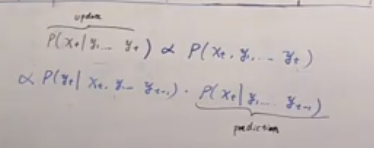 update
P(x_t | y_1 ... y_t) ∝ P(x_t, y_1, ... y_t)
∝ P(y_t | x_t, y_1 ... y_{t-1}) · P(x_t | y_1 ... y_{t-1})
prediction